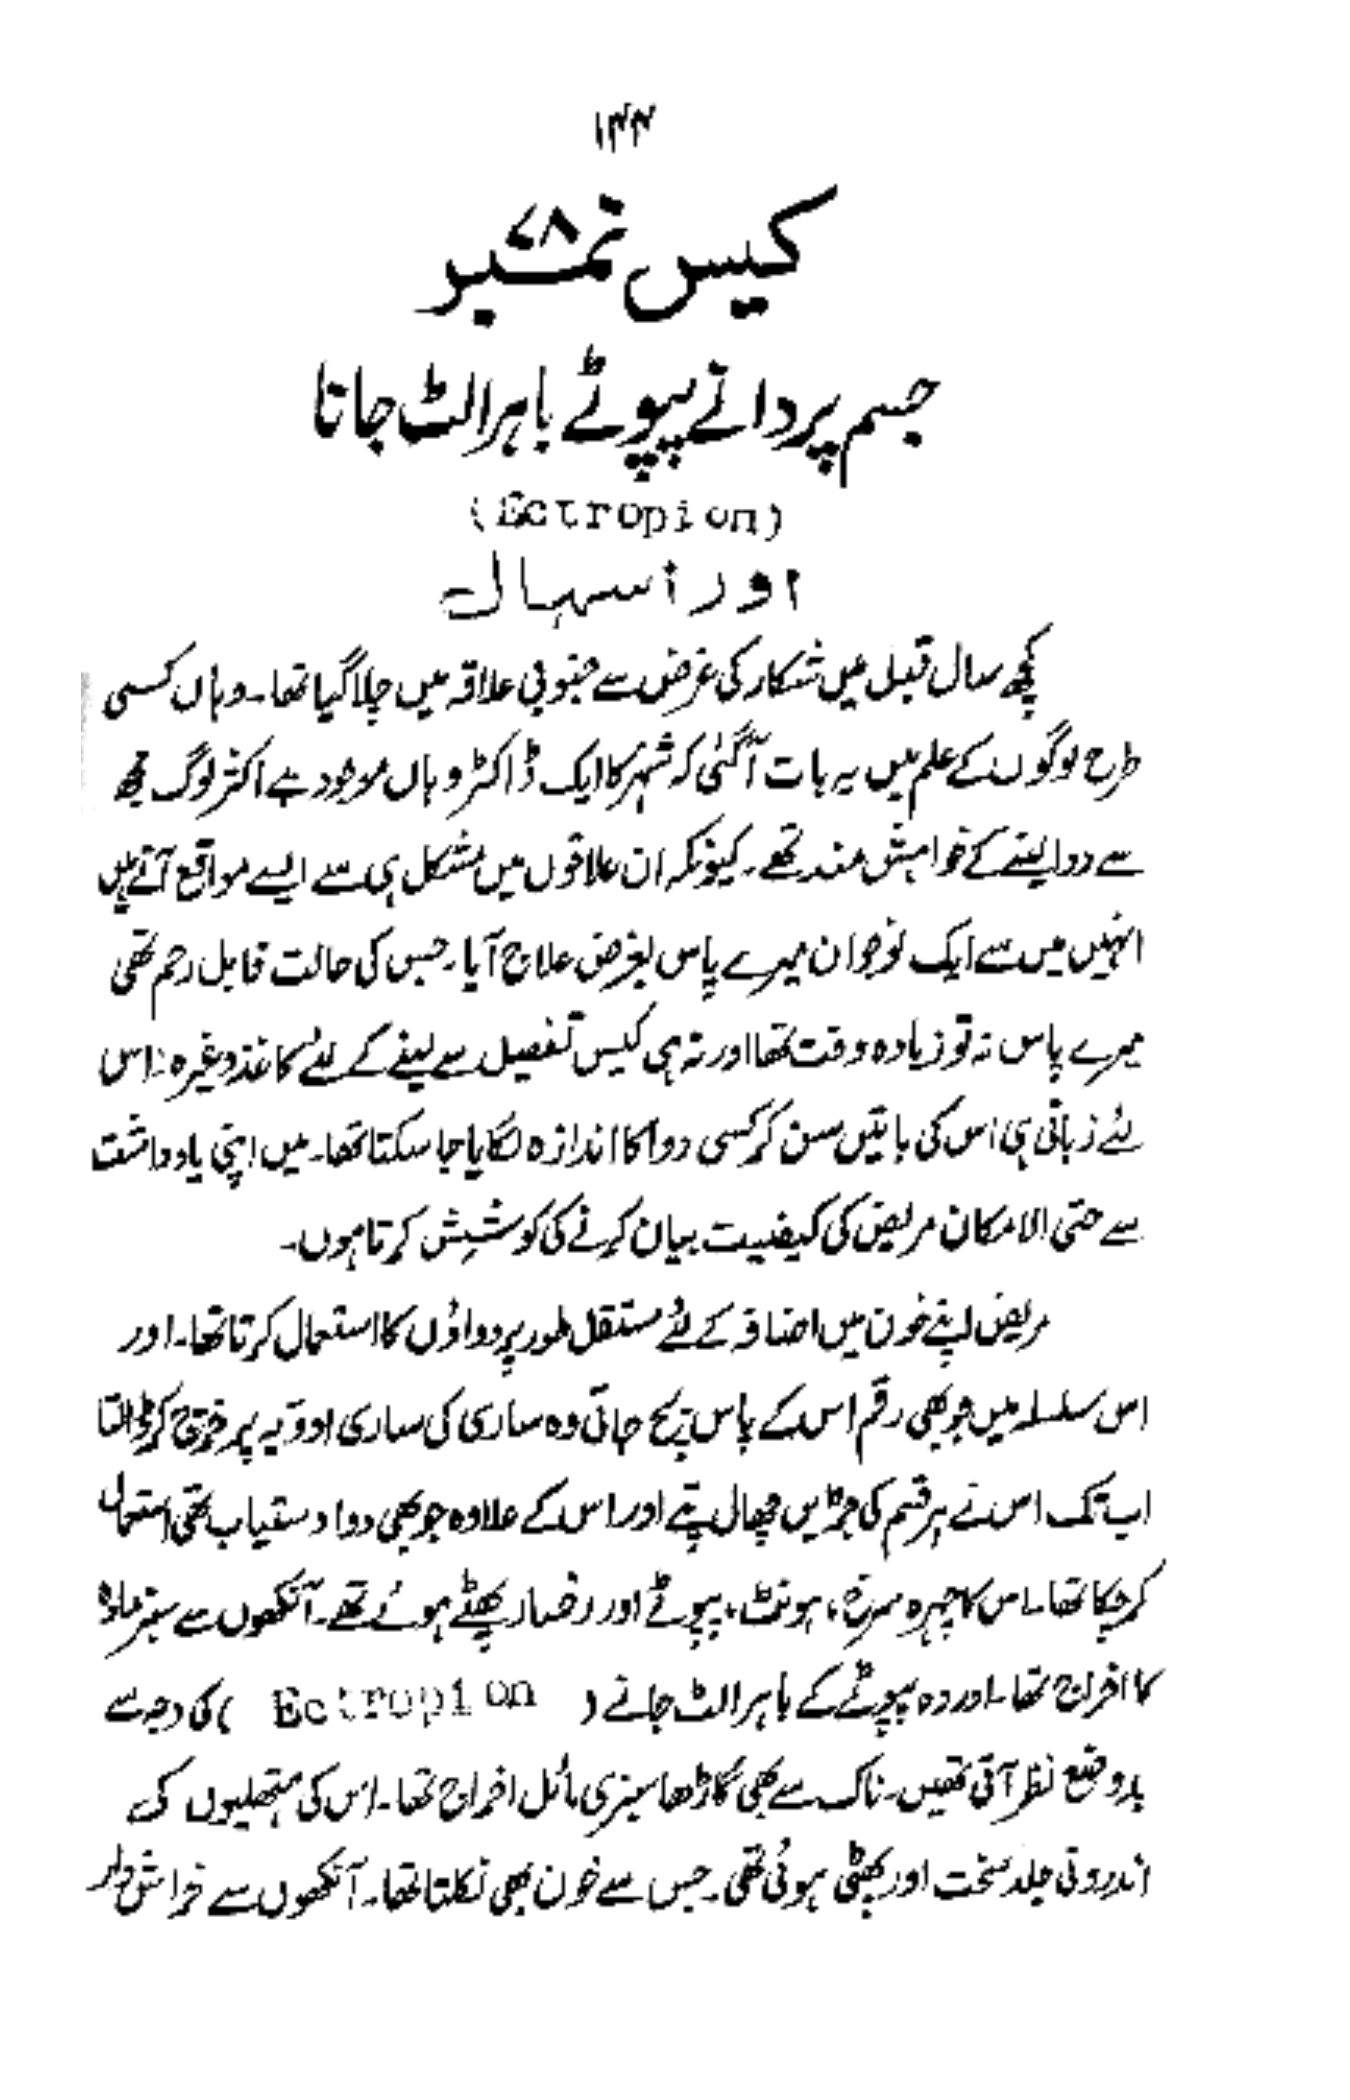 ۱۴۴
کیس نمبر ۷۸
جسم پر دانے پپوٹے باہر الٹ جانا
(Ectropion)
اور اسہال
کچھ سال قبل میں شکار کی غرض سے جنوبی علاقہ میں چلا گیا تھا۔ وہاں کسی
طرح لوگوں کے علم میں یہ بات آگئی کہ شہر کا ایک ڈاکٹر وہاں موجود ہے اکثر لوگ مجھ
سے دوا لینے کے خواہش مند تھے۔ کیونکہ ان علاقوں میں مشکل ہی سے ایسے مواقع آتے ہیں
انہیں میں سے ایک نوجوان میرے پاس بغرض علاج آیا۔ جس کی حالت قابل رحم تھی
میرے پاس نہ تو زیادہ وقت تھا اور نہ ہی کیس تفصیل سے لینے کے لئے کاغذ وغیرہ۔ اس
لئے زبانی ہی اس کی باتیں سن کر کسی دوا کا اندازہ لگایا جا سکتا تھا۔ میں اپنی یادداشت
سے حتی الامکان مریض کی کیفیت بیان کرنے کی کوشش کرتا ہوں۔
مریض اپنے خون میں اضافہ کے لئے مستقل طور پر دواؤں کا استعمال کرتا تھا۔ اور
اس سلسلہ میں جو بھی رقم اس کے پاس بچ جاتی وہ ساری کی ساری ادویہ پر خرچ کر ڈالتا
اب تک اس نے ہر قسم کی جڑیں چھال پتے اور اس کے علاوہ جو بھی دوا دستیاب تھی استعمال
کر چکا تھا۔ اس کا چہرہ سرخ، ہونٹ، پپوٹے اور رخسار پھٹے ہوئے تھے۔ آنکھوں سے سبز مادہ
کا اخراج تھا۔ اور وہ پپوٹے کے باہر الٹ جانے (Ectropion) کی وجہ سے
بدوضع نظر آتی تھیں۔ ناک سے بھی گاڑھا سبزی مائل اخراج تھا۔ اس کی ہتھلیوں کی
اندرونی جلد سخت اور پھٹی ہوئی تھی۔ جس سے خون بھی نکلتا تھا۔ آنکھوں سے خراش دار